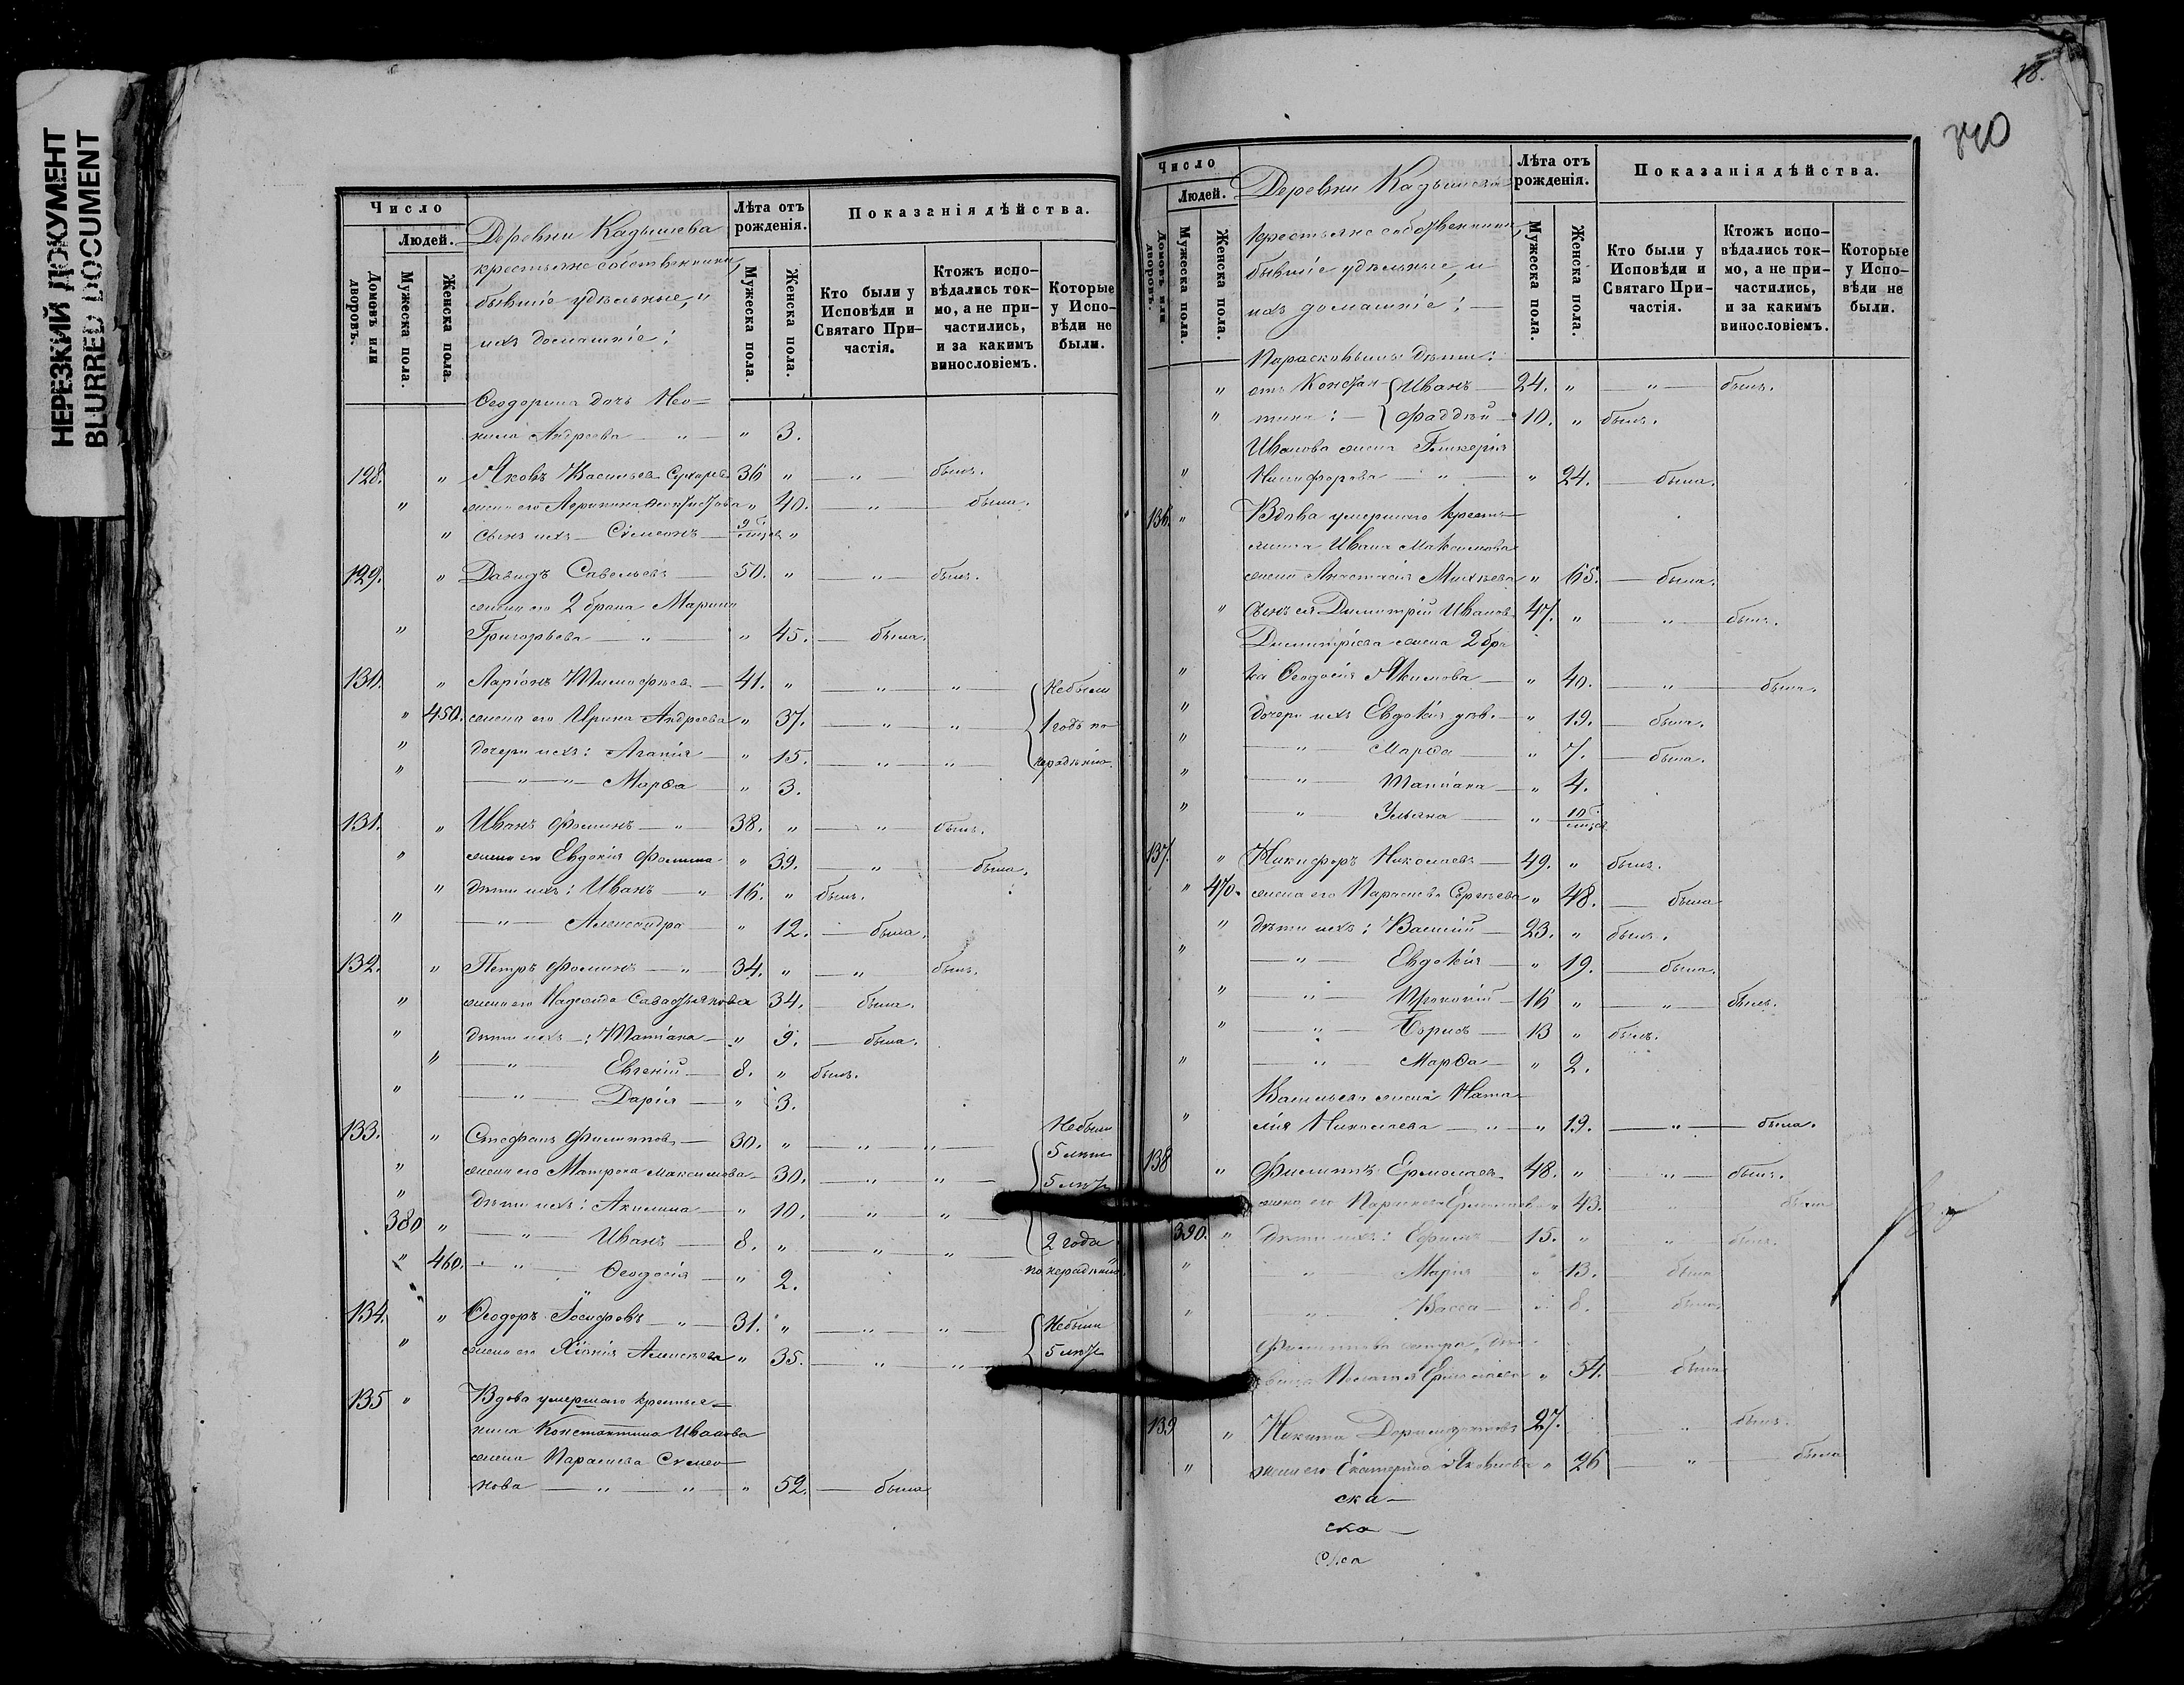 НЕРЕЗКИЙ ДОКУМЕНТ
BLURRED DOCUMENT
Число
Людей.
Домовъ или дворовъ.
Мужеска пола.
Женска пола.
Деревни Кадышева
крестьяне собственники,
бывшіе удѣльные, и
ихъ домашніе:
Лѣта отъ рожденія.
Мужеска пола.
Женска пола.
Показанія дѣйства.
Кто были у Исповѣди и Святаго При-частія.
Ктожъ испо-вѣдались ток-мо, а не при-частились, и за какимъ винословіемъ.
Которые у Испо-вѣди не были.
Ѳеодорина дочь Нео=
нила Андреева — " — " 3.
128. " Яковъ Васильевъ Сухоревъ 36 " — " — былъ.
" жена его Агрипина Ѳеоктистова " 40. — " — была.
" сынъ ихъ — Сѵмеонъ — 9 "
129. " Давидъ Савельевъ — 50. " — " — былъ.
жена его 2 брака Марина
" Григорьева — " — " 45. — была.
130. " Ларіонъ Тимофѣевъ — 41. " — " — " — Небыли
" 450. жена его Ирина Андреева " 37. — " — " — 1 годъ по
" дочери ихъ: Агапія — " 15. — " — " — нерадѣнію.
" — " — " — Марѳа — " 3.
131. " Иванъ Фоминъ — " — 38. " — " — былъ.
" жена его Евдокія Фомина " 39. — " — была.
" дѣти ихъ: Иванъ — " 16. " былъ.
" — " — Александра — " 12. — была.
132. " Петръ Фоминъ — " — 34. " — " былъ.
" жена его Надежда Савастьянова 34. — была.
" дѣти ихъ —: Татіана — " 9. — была.
" — " — Евгеній — 8. " былъ.
" — " — Дарія — " 3.
133. " Стефанъ Филипповъ — 30. " — " — " — Небыли
5 лѣтъ
" жена его Матрона Максимова — 30. — " — " — 5 лѣтъ
" дѣти ихъ: Акилина — " 10. — " — "
380 " — " — Иванъ — 8. " — " — " — 2 года
" 460. — " — Ѳеодосія — " 2. по нерадѣнію.
134. " Ѳеодоръ Іосифовъ — " — 31. " — " — " — Небыли
" жена его Хіонія Алексѣева " 35. — " — " — 5 лѣтъ
135 " Вдова умершаго крестья=
нина Константина Иванова
жена Параскева Сѵмео
нова — " — " — " 52. — была
18.
240
Число
Людей.
Домовъ или дворовъ.
Мужеска пола.
Женска пола.
Деревни Кадышева
крестьяне собственники,
бывшіе удѣльные, и
ихъ домашніе: —
Лѣта отъ рожденія.
Мужеска пола.
Женска пола.
Показанія дѣйства.
Кто были у Исповѣди и Святаго При-частія.
Ктожъ испо-вѣдались ток-мо, а не при-частились, и за какимъ винословіемъ.
Которые у Испо-вѣди не были.
Парасковьины дѣти:
" отъ Констан- Иванъ — 24. " — " — былъ.
" тина: — Фаддѣй — 10. " былъ.
Иванова жена Гликерія
" Никифорова — " — " 24. — была.
136. " Вдова умершаго крестья
нина Ивана Максимова
жена Анастасія Михѣева " 65. — была.
" сынъ ея Димитрій Ивановъ 47. " — " — былъ.
Димитріева жена 2 бра
" ка Ѳеодосія Якимова — " 40. — " — была.
" дочери ихъ Евдокія дѣв. — " 19. — была.
" — " — Марѳа — " 7. — была.
" — " — Татіана — " 4.
" — " — Ульяна — " 10
137. " Никифоръ Николаевъ — 49. " былъ.
" 470. жена его Параскева Сергѣева " 48. — была
" дѣти ихъ: Василій — 23. " былъ.
" — " — Евдокія — " 19. — была.
" — " — Прокопій — 16 " — " — былъ.
" — " — Борисъ — 13 " былъ.
" — " — Марѳа — " 2.
Васильева жена Ната
" лія Николаева — " — " 19. — " — была.
138 " Филиппъ Ермолаевъ 48. " — " — былъ.
жена его " 43. " была
390. " дѣти ихъ: Ефимъ — 15. " " былъ.
" " Марія — " 13. — была
" " Васса — " 8. была.
Филиппова сестра, дѣ-
вица Пелагія Ермолаева " 54. — была
139 " Никита 27. — " — былъ.
" жена его Екатерина Яковлева " 26 — " — была
ска —
ска —
ска